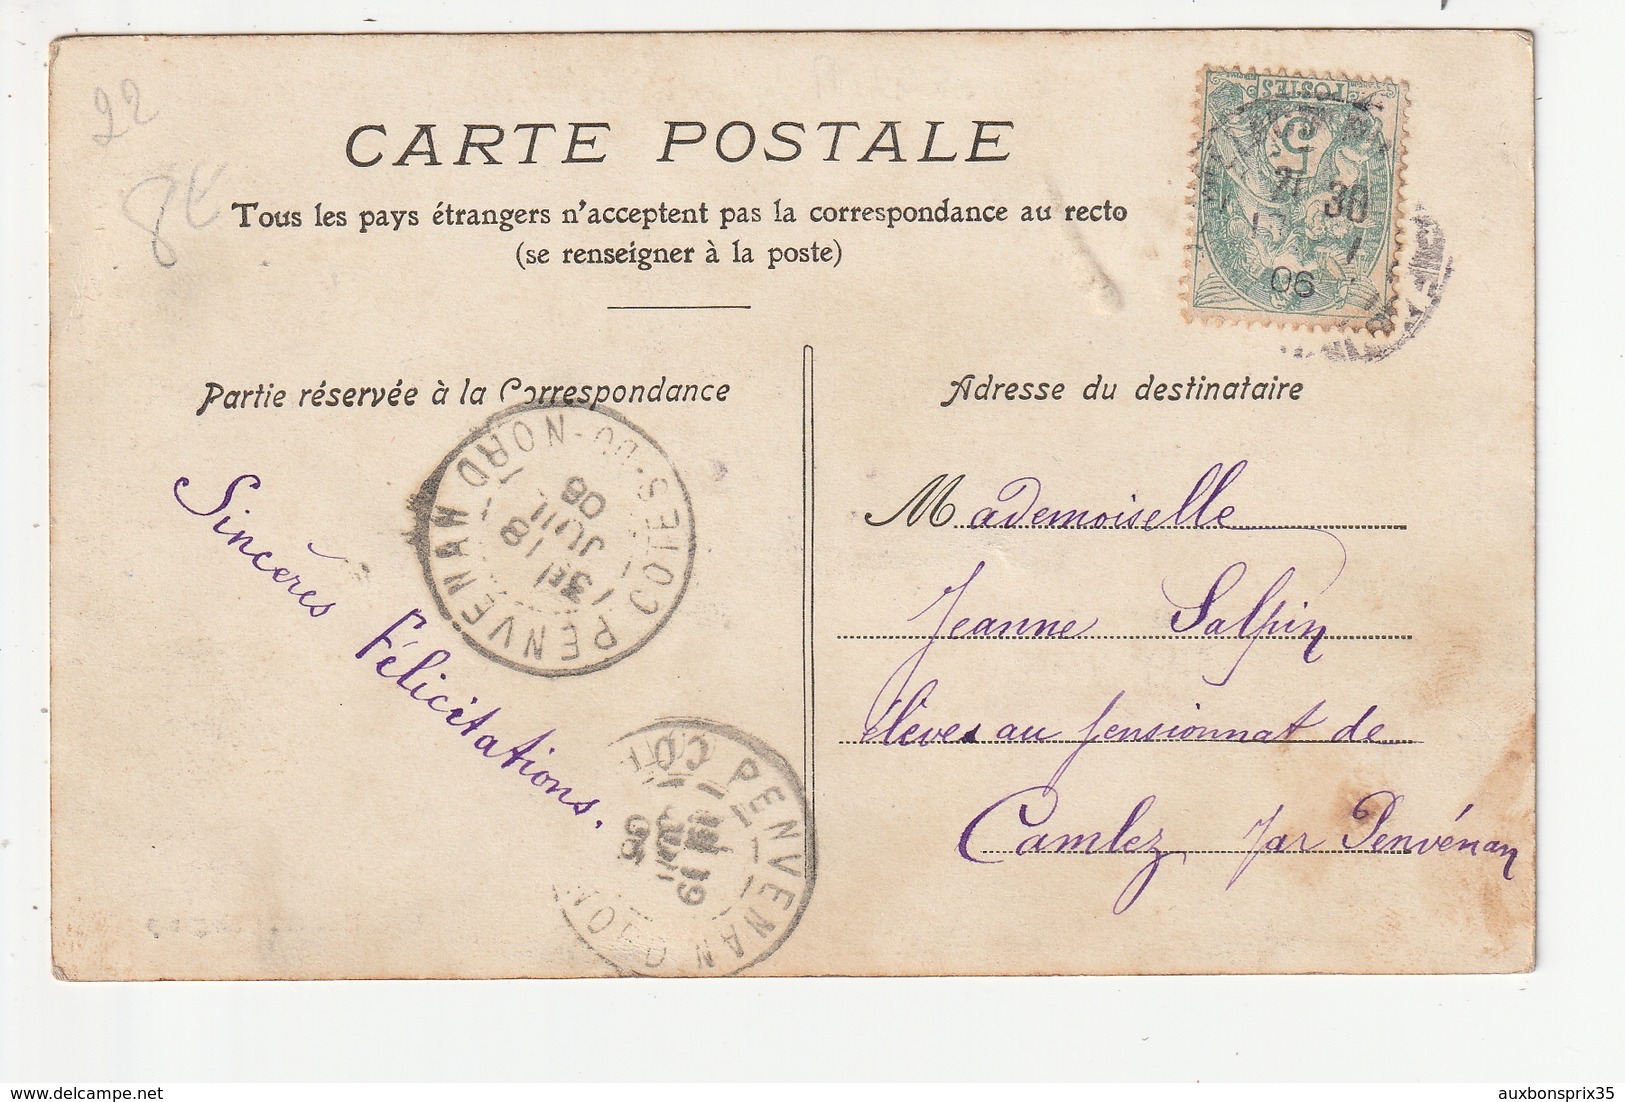 22
8€
CARTE POSTALE
Tous les pays étrangers n'acceptent pas la correspondance au recto
(se renseigner à la poste)
POSTES
5
21 30
06
Partie réservée à la Correspondance
Adresse du destinataire
Sincères Félicitations.
PENVENAN CÔTES-DU-NORD
3E
18
JUIL
06
PENVENAN
19
06
Mademoiselle
Jeanne Salpin
élèves au pensionnat de
Camlez par Penvénan
delcampe.net
auxbonsprix35